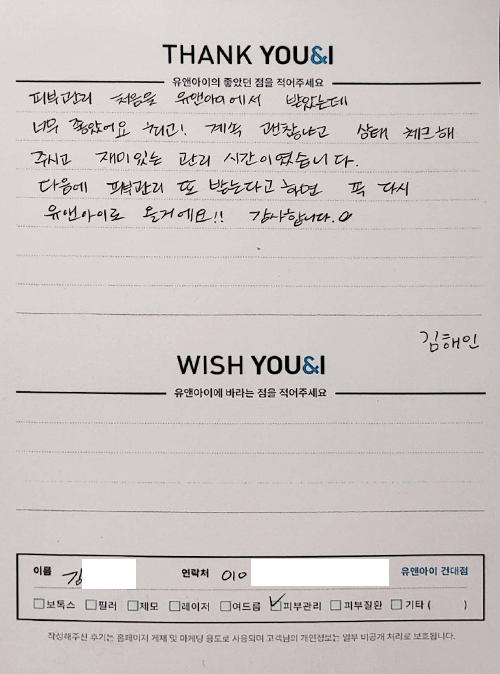 THANK YOU&I
유앤아이의 좋았던 점을 적어주세요
피부관리 처음을 유앤아이에서 받았는데
너무 좋았어요 그리고! 계속 괜찮냐고 상태 체크해
주시고 재미있는 관리 시간이였습니다.
다음에 피부관리 또 받는다고 하면 꼭 다시
유앤아이로 올거에요!! 감사합니다.
김해인
WISH YOU&I
유앤아이에 바라는 점을 적어주세요
이름 김 연락처 010 유앤아이 건대점
보톡스 필러 제모 레이저 여드름 피부관리 피부질환 기타 ( )
작성해주신 후기는 홈페이지 게재 및 마케팅 용도로 사용되며 고객님의 개인정보는 일부 비공개 처리로 보호됩니다.